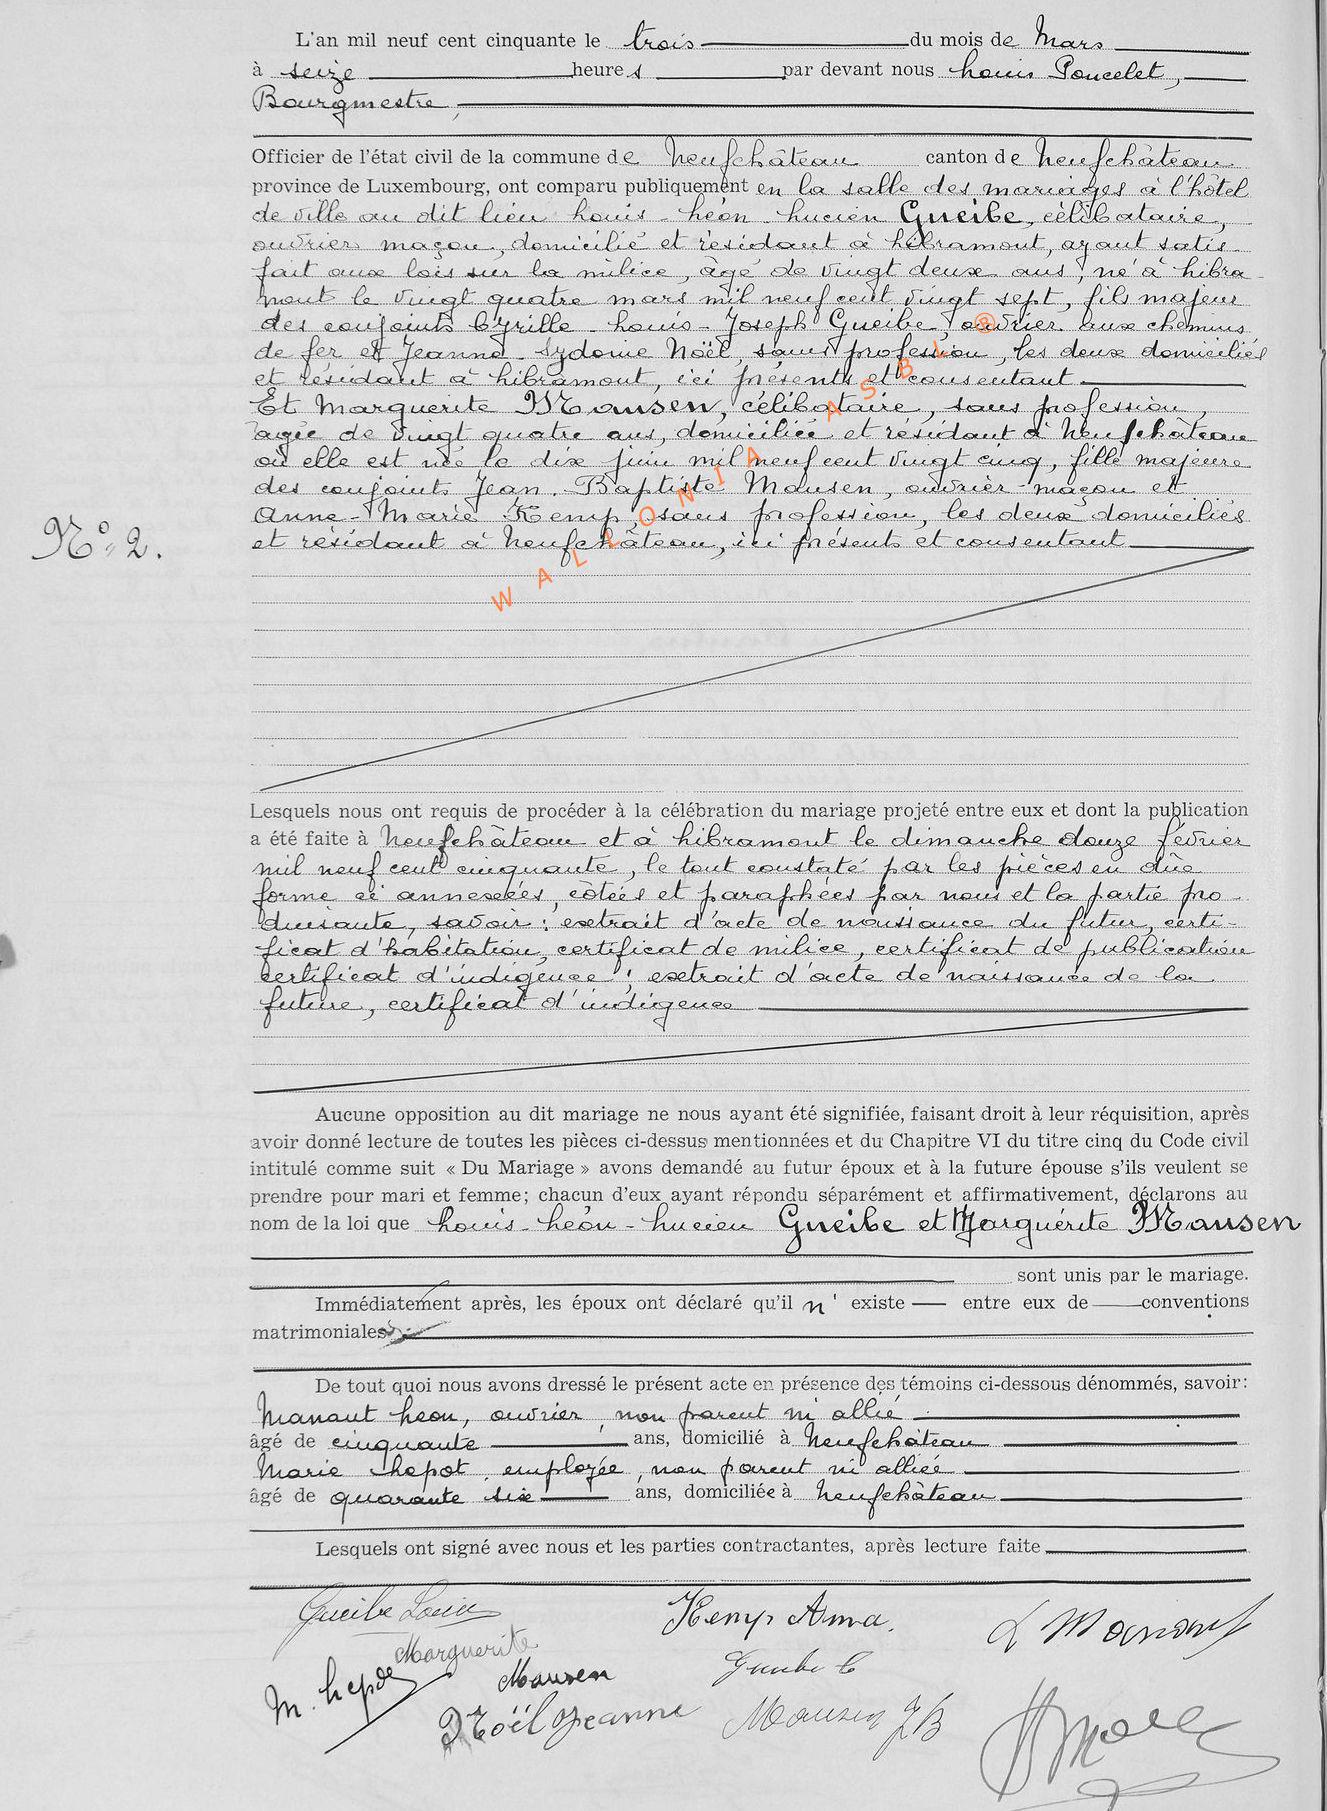 L'an mil neuf cent cinquante le trois du mois de Mars
à seize heures par devant nous Louis Poncelet,
Bourgmestre,
Officier de l'état civil de la commune de Neufchâteau canton de Neufchâteau
province de Luxembourg, ont comparu publiquement en la salle des mariages à l'hôtel
de ville au dit lieu Louis-Léon-Lucien Gueibe, célibataire,
ouvrier maçon, domicilié et résidant à Libramont, ayant satis-
fait aux lois sur la milice, âgé de vingt deux ans, né à Libra-
mont le vingt quatre mars mil neuf cent vingt sept, fils majeur
des conjoints Cyrille-Louis-Joseph Gueibe, ouvrier aux chemins
de fer et Jeanne-Sydonie Noël, sans profession, les deux domiciliés
et résidant à Libramont, ici présents et consentant
Et Marguerite Mausen, célibataire, sans profession,
agée de vingt quatre ans, domiciliée et résidant à Neufchâteau
où elle est née le dix juin mil neuf cent vingt cinq, fille majeure
des conjoints Jean-Baptiste Mausen, ouvrier-maçon et
Anne-Marie Kemp, sans profession, les deux domiciliés
N° 2.
et résidant à Neufchâteau, ici présents et consentant
WALLONIA ASBL ®
Lesquels nous ont requis de procéder à la célébration du mariage projeté entre eux et dont la publication
a été faite à Neufchâteau et à Libramont le dimanche douze février
mil neuf cent cinquante, le tout constaté par les pièces en due
forme ci annexées, côtées et paraphées par nous et la partie pro-
duisante, savoir: extrait d'acte de naissance du futur, certi-
ficat d'habitation, certificat de milice, certificat de publication
certificat d'indigence; extrait d'acte de naissance de la
future, certificat d'indigence
Aucune opposition au dit mariage ne nous ayant été signifiée, faisant droit à leur réquisition, après
avoir donné lecture de toutes les pièces ci-dessus mentionnées et du Chapitre VI du titre cinq du Code civil
intitulé comme suit « Du Mariage » avons demandé au futur époux et à la future épouse s'ils veulent se
prendre pour mari et femme; chacun d'eux ayant répondu séparément et affirmativement, déclarons au
nom de la loi que Louis-Léon-Lucien Gueibe et Marguérite Mausen
sont unis par le mariage.
Immédiatement après, les époux ont déclaré qu'il n' existe entre eux de conventions
matrimoniales.
De tout quoi nous avons dressé le présent acte en présence des témoins ci-dessous dénommés, savoir:
Manaut Léon, ouvrier, non parent ni allié
âgé de cinquante ans, domicilié à Neufchâteau
Marie Lepot, employée, non parent ni alliée
âgé de quarante six ans, domiciliée à Neufchâteau
Lesquels ont signé avec nous et les parties contractantes, après lecture faite
Gueibe Louis
Kemp Anna.
L Manaut
Marguerite
Mausen
M. Lepot
Gueibe C
Noël Jeanne
Mausen JB